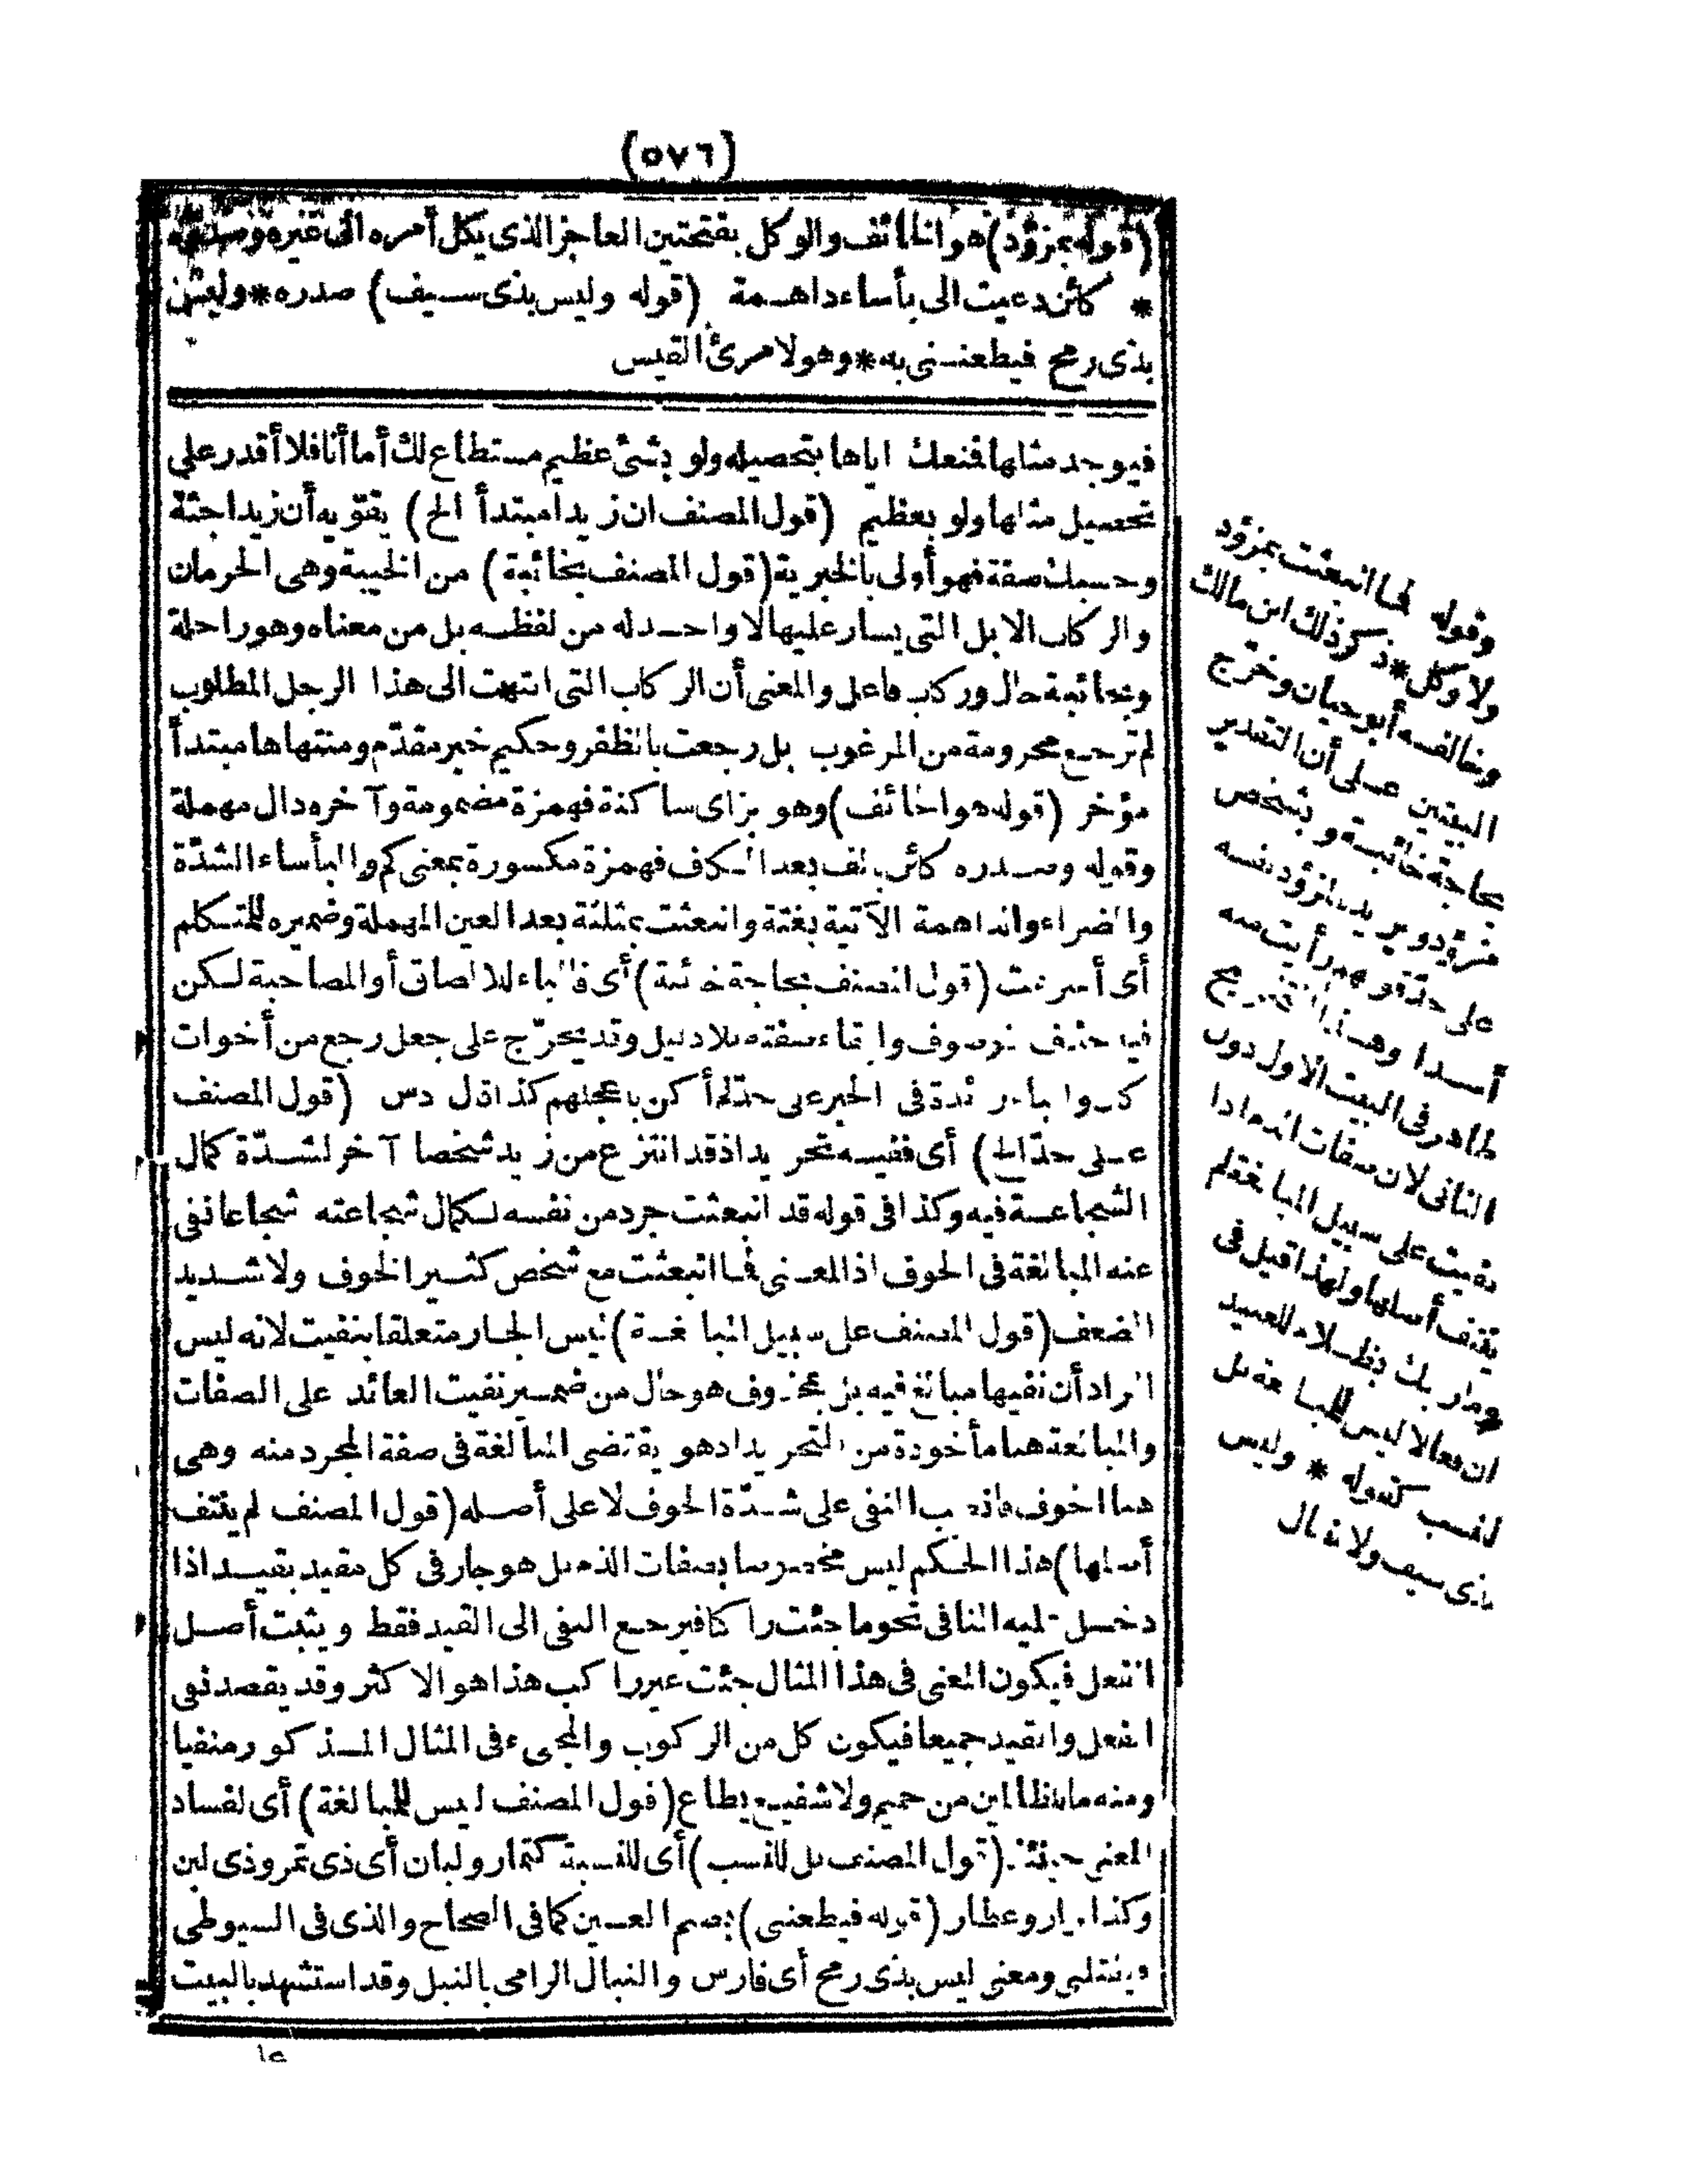 (٥٧٦)
(قوله بمزؤد) هو الخائف والوكل بفتحتين العاجز الذى يكل أمره الى غيره وصدره
* كائن دعيت الى بأساء داهمة (قوله وليس بذى سيف) صدره * وليس
بذى رمح فيطعننى به * وهو لامرئ القيس
فيوجد مثلها فمنعك اياها بتحصيله ولو بشئ عظيم مستطاع لك أما أنا فلا أقدر على
تحصيل مثلها ولو بعظيم (قول المصنف ان زيدا مبتدأ الخ) يقويه أن زيدا جثة
وحسبك صفة فهو أولى بالخبرية (قول المصنف بخائبة) من الخيبة وهى الحرمان
والركاب الابل التى يسار عليها لا واحد له من لفظه بل من معناه وهو راحلة
وبخائبة حال وركاب فاعل والمعنى أن الركاب التى انتهت الى هذا الرجل المطلوب
لم ترجع محرومة من المرغوب بل رجعت بالظفر وحكيم خبر مقدّم ومنتهاها مبتدأ
مؤخر (قوله هو الخائف) وهو بزاى ساكنة فهمزة مضمومة وآخره دال مهملة
وقوله وصدره كائن بألف بعد الكاف فهمزة مكسورة بمعنى كم والبأساء الشدّة
والضراء والداهمة الآتية بغتة وانبعثت بمثلثة بعد العين المهملة وضميره للمتكلم
أى أسرعت (قول المصنف بحاجة خائبة) أى فالباء للالصاق أو المصاحبة لكن
فيه حذف موصوف وابقاء صفته بلا دليل وقد يخرّج على جعل رجع من أخوات
كان والباء زائدة فى الخبر على حدّ لم أكن بأعجلهم كذا قال دس (قول المصنف
على حدّ الخ) أى ففيه تجريد اذ قد انتزع من زيد شخصا آخر لشدّة كمال
الشجاعة فيه وكذا فى قوله قد انبعثت جرد من نفسه لكمال شجاعته شجاعا نفى
عنه المبالغة فى الخوف اذ المعنى فما انبعثت مع شخص كثير الخوف ولا شديد
الضعف (قول المصنف على سبيل المبالغة) ليس الجار متعلقا بنفيت لانه ليس
المراد أن نفيها مبالغ فيه بل بمحذوف هو حال من ضمير نفيت العائد على الصفات
والمبالغة هنا مأخوذة من التجريد اذ هو يقتضى المبالغة فى صفة المجرد منه وهى
هنا الخوف فانصب النفى على شدّة الخوف لا على أصله (قول المصنف لم ينتف
أصلها) هذا الحكم ليس مخصوصا بصفات الذم بل هو جار فى كل مقيد بقيد اذا
دخل عليه النافى نحو ما جئت راكبا فيرجع النفى الى القيد فقط ويثبت أصل
الفعل فيكون المعنى فى هذا المثال جئت غير راكب هذا هو الاكثر وقد يقصد نفى
الفعل والقيد جميعا فيكون كل من الركوب والمجىء فى المثال المذكور منفيا
ومنه ما للظالمين من حميم ولا شفيع يطاع (قول المصنف ليس للمبالغة) أى لفساد
المعنى حينئذ (قول المصنف بل للنسب) أى للنسبة كتمار ولبان أى ذى تمر وذى لبن
وكذا بزار وعطار (قوله فيطعننى) بضم العين كما فى الصحاح والذى فى السيوطى
فيقتلنى ومعنى ليس بذى رمح أى فارس والنبال الرامى بالنبل وقد استشهد بالبيت
على
وقوله فما انبعثت بمزؤد
ولا وكل * ذكر ذلك ابن مالك
وخالفه أبو حيان وخرّج
البيتين على أن التقدير
بحاجة خائبة وبشخص
مزؤد ويريد بالمزؤد نفسه
على حدّ قولهم رأيت منه
أسدا وهذا التخريج
ظاهر فى البيت الاول دون
الثانى لان صفات الذم اذا
نفيت على سبيل المبالغة لم
ينتف أصلها ولهذا قيل فى
وما ربك بظلام للعبيد
ان فعالا ليس للمبالغة بل
للنسب كقوله * وليس
بذى سيف ولا نبال